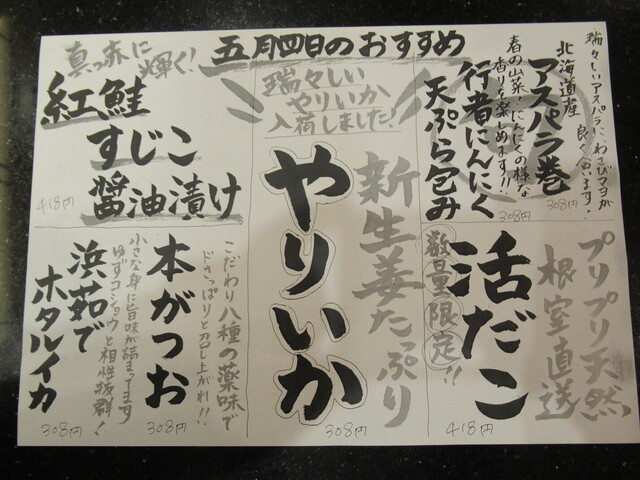 五月四日のおすすめ
瑞々しいアスパラに、わさびマヨが
良く合います！
北海道産
アスパラ巻
308円
春の山菜！にんにくの様な
香りを楽しめます!!
行者にんにく
天ぷら包み
308円
瑞々しい
やりいか
入荷しました！
新生姜たっぷり
やりいか
308円
真っ赤に
輝く！
紅鮭
すじこ
醤油漬け
418円
プリプリ天然
根室直送
活だこ
数量限定!!
418円
こだわり八種の薬味で
どさっぱりと召し上がれ!!
本がつお
308円
小さな身に旨味が詰まってます
ゆずコショウと相性抜群！
浜茹で
ホタルイカ
308円